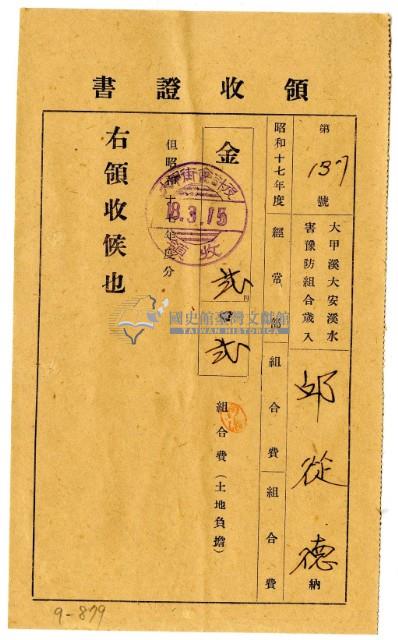 領收證書
第 137 號
大甲溪大安溪水
害豫防組合歲入
邱從德 納
昭和十七年度
經常部 組合費 組合費
金 貳円 貳
組合費(土地負擔)
但昭和十七年度分
右領收候也
18.3.15
領收
國史館臺灣文獻館
TAIWAN HISTORICA
9-879